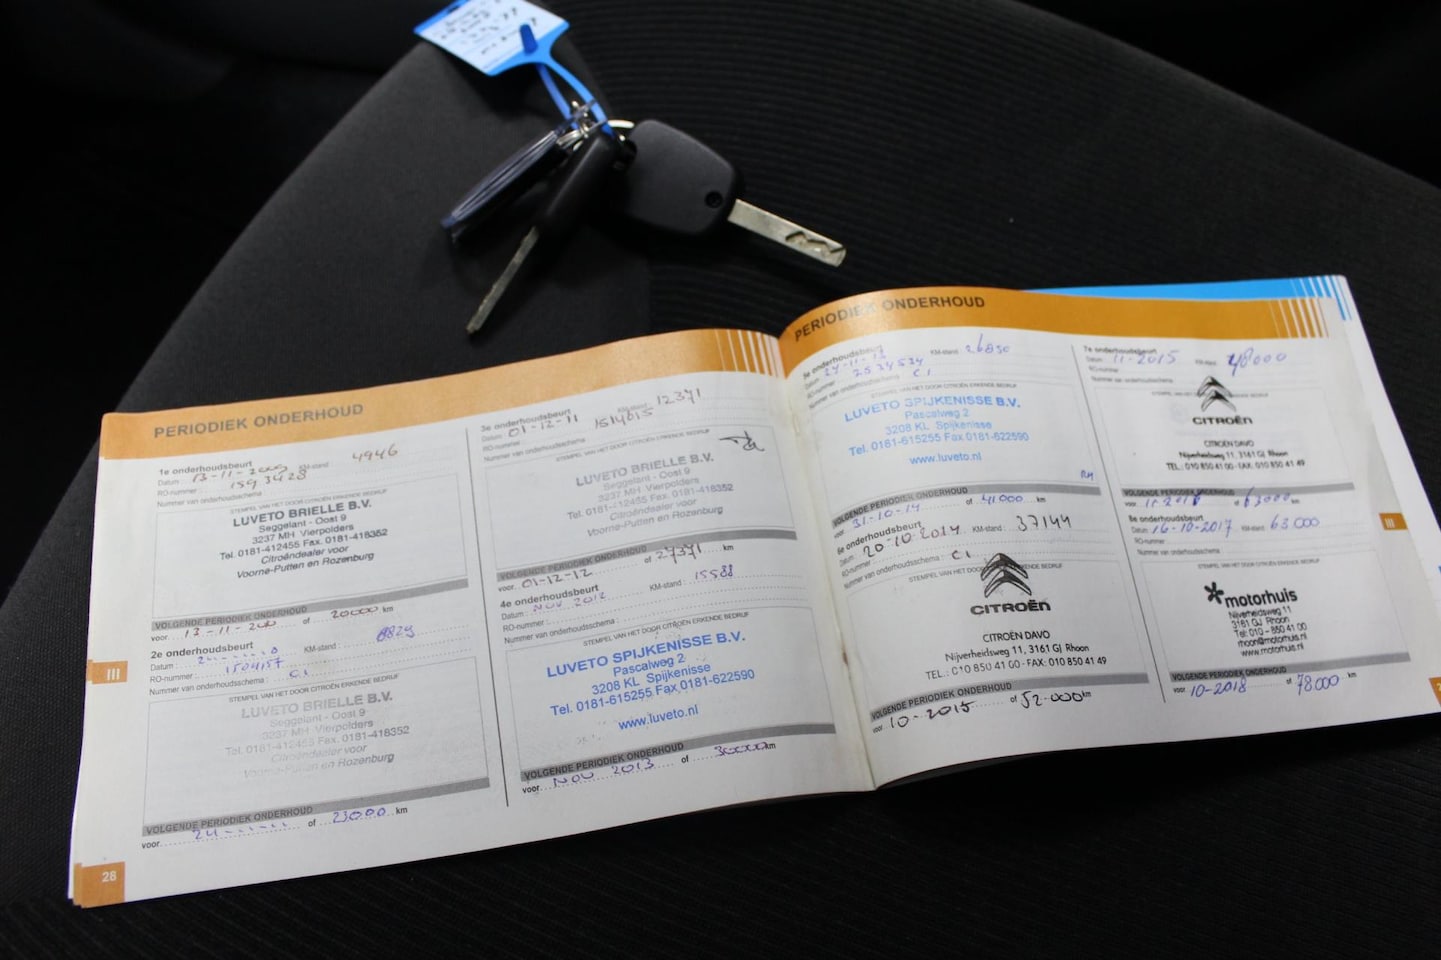 PERIODIEK ONDERHOUD
1e onderhoudsbeurt
Datum : 13-11-2009 KM-stand : 4946
RO-nummer : 1593428
Nummer van onderhoudsschema :
STEMPEL VAN HET DOOR CITROËN ERKENDE BEDRIJF
LUVETO BRIELLE B.V.
Seggelant - Oost 9
3237 MH Vierpolders
Tel. 0181-412455 Fax. 0181-418352
Citroëndealer voor
Voorne-Putten en Rozenburg
VOLGENDE PERIODIEK ONDERHOUD
voor of 20000 km
2e onderhoudsbeurt
Datum : 8829
RO-nummer : 1504157
Nummer van onderhoudsschema : C1
STEMPEL VAN HET DOOR CITROËN ERKENDE BEDRIJF
LUVETO BRIELLE B.V.
Seggelant - Oost 9
3237 MH Vierpolders
Tel. 0181-412455 Fax. 0181-418352
Citroëndealer voor
Voorne-Putten en Rozenburg
VOLGENDE PERIODIEK ONDERHOUD
voor of 23000 km
28
III
3e onderhoudsbeurt
Datum : 01-12-11 KM-stand : 12371
RO-nummer : 1514615
Nummer van onderhoudsschema :
STEMPEL VAN HET DOOR CITROËN ERKENDE BEDRIJF
LUVETO BRIELLE B.V.
Seggelant - Oost 9
3237 MH Vierpolders
Tel. 0181-412455 Fax. 0181-418352
Citroëndealer voor
Voorne-Putten en Rozenburg
VOLGENDE PERIODIEK ONDERHOUD
voor 01-12-12 of 27371 km
4e onderhoudsbeurt
Datum : NOV 2012 KM-stand : 15588
RO-nummer :
Nummer van onderhoudsschema :
STEMPEL VAN HET DOOR CITROËN ERKENDE BEDRIJF
LUVETO SPIJKENISSE B.V.
Pascalweg 2
3208 KL Spijkenisse
Tel. 0181-615255 Fax 0181-622590
www.luveto.nl
VOLGENDE PERIODIEK ONDERHOUD
voor NOV 2013 of 30000 km
PERIODIEK ONDERHOUD
5e onderhoudsbeurt
Datum : 27-11-13 KM-stand : 26850
RO-nummer : 2524534
Nummer van onderhoudsschema : C1
STEMPEL VAN HET DOOR CITROËN ERKENDE BEDRIJF
LUVETO SPIJKENISSE B.V.
Pascalweg 2
3208 KL Spijkenisse
Tel. 0181-615255 Fax 0181-622590
www.luveto.nl
VOLGENDE PERIODIEK ONDERHOUD
voor 31-10-14 of 41000 km
6e onderhoudsbeurt
Datum : 20-10-2014 KM-stand : 37144
RO-nummer :
Nummer van onderhoudsschema : C1
STEMPEL VAN HET DOOR CITROËN ERKENDE BEDRIJF
CITROËN
CITROËN DAVO
Nijverheidsweg 11, 3161 GJ Rhoon
TEL.: 010 850 41 00 - FAX: 010 850 41 49
VOLGENDE PERIODIEK ONDERHOUD
voor 10-2015 of 52.000 km
7e onderhoudsbeurt
Datum : 11-2015 KM-stand : 48000
RO-nummer
Nummer van onderhoudsschema
CITROËN
CITROËN DAVO
Nijverheidsweg 11, 3161 GJ Rhoon
TEL.: 010 850 41 00 - FAX: 010 850 41 49
VOLGENDE PERIODIEK ONDERHOUD
voor 11-2016 of 63000 km
8e onderhoudsbeurt
Datum : 16-10-2017 KM-stand : 63.000
RO-nummer
Nummer van onderhoudsschema
STEMPEL VAN HET DOOR CITROËN ERKENDE BEDRIJF
motorhuis
Nijverheidsweg 11
3161 GJ Rhoon
Tel: 010 - 850 41 00
rhoon@motorhuis.nl
www.motorhuis.nl
VOLGENDE PERIODIEK ONDERHOUD
voor 10-2018 of 78.000 km
III